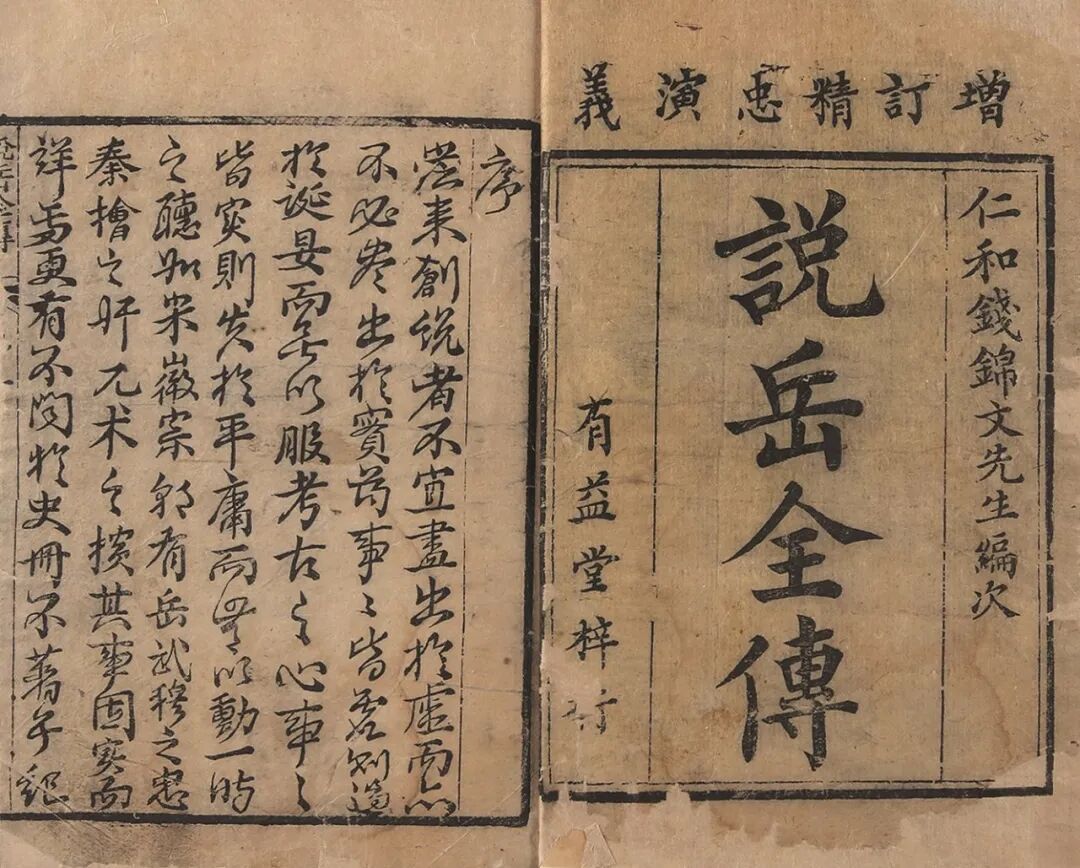 增訂精忠演義
仁和錢錦文先生編次
説岳全傳
有益堂梓行
序
從来創说者不宜盡出於虛而亦
不必盡出於實苟事〻皆虛则過
於誕妄而無以服考古之心事〻
皆实則失於平庸而無以動一時
之聽如宋徽宗朝有岳武穆之忠
秦檜之奸兀术之横其事固实而
详焉更有不闻於史冊不著於紀